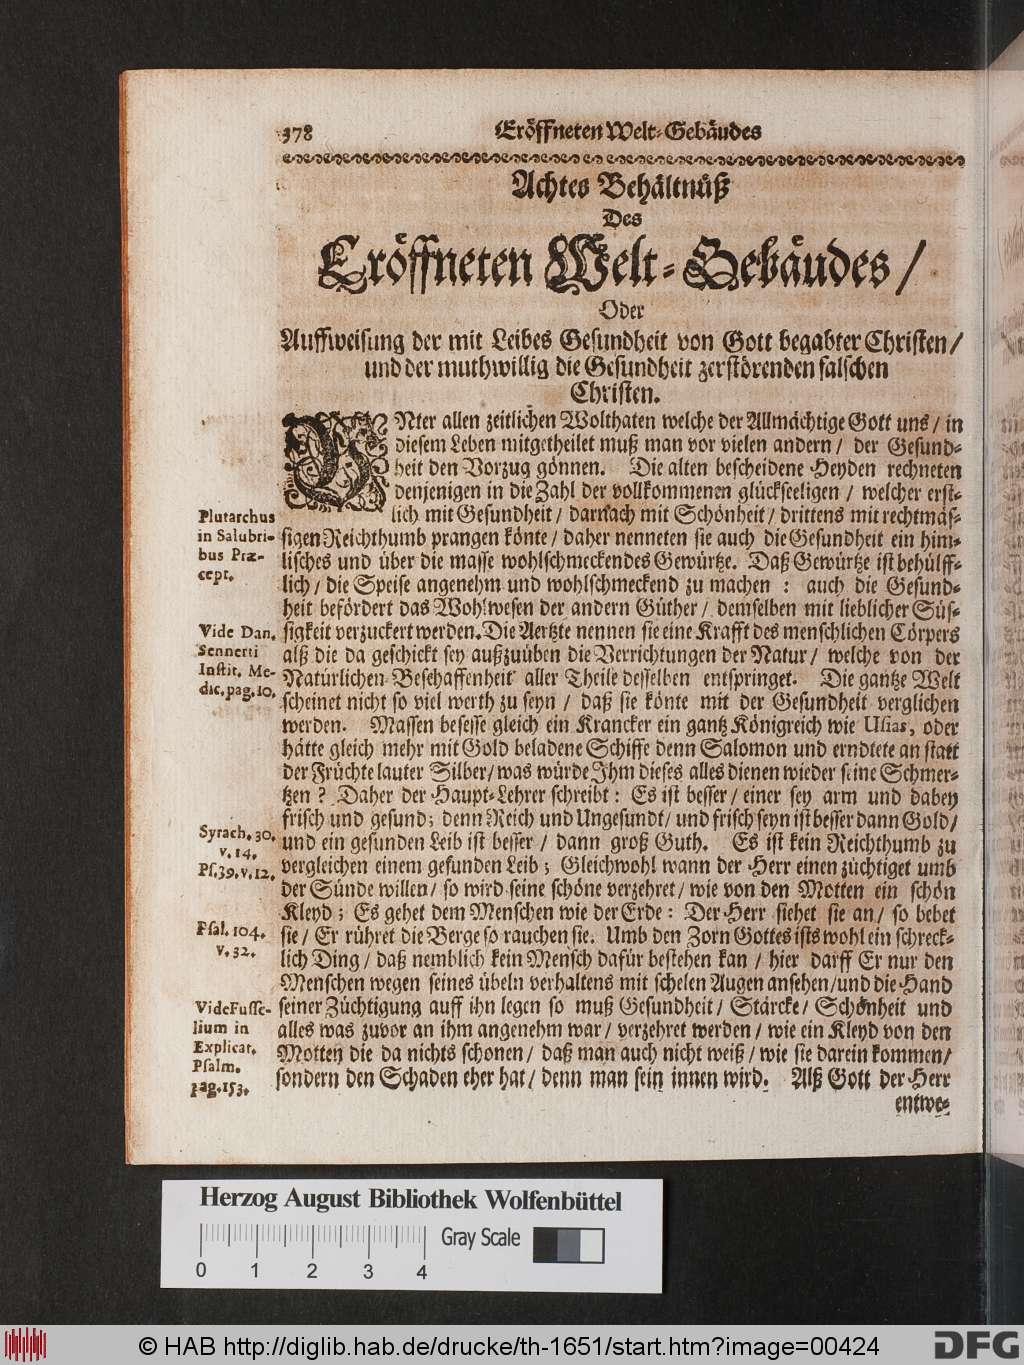 378
Eröffneten Welt-Gebäudes
Achtes Behältnüß
Des
Eröffneten Welt-Gebäudes /
Oder
Auffweisung der mit Leibes Gesundheit von Gott begabter Christen /
und der muthwillig die Gesundheit zerstörenden falschen
Christen.
UNter allen zeitlichen Wolthaten welche der Allmächtige Gott uns / in
diesem Leben mitgetheilet muß man vor vielen andern / der Gesund-
heit den Vorzug gönnen. Die alten bescheidene Heyden rechneten
denjenigen in die Zahl der vollkommenen glückseeligen / welcher erst-
lich mit Gesundheit / darnach mit Schönheit / drittens mit rechtmäs-
sigen Reichthumb prangen könte / daher nenneten sie auch die Gesundheit ein him-
lisches und über die masse wohlschmeckendes Gewürtze. Daß Gewürtze ist behülff-
lich / die Speise angenehm und wohlschmeckend zu machen : auch die Gesund-
heit befördert das Wohlwesen der andern Güther / demselben mit lieblicher Süs-
sigkeit verzuckert werden. Die Aertzte nennen sie eine Krafft des menschlichen Cörpers
alß die da geschickt sey außzuüben die Verrichtungen der Natur / welche von der
Natürlichen Beschaffenheit aller Theile desselben entspringet. Die gantze Welt
scheinet nicht so viel werth zu seyn / daß sie könte mit der Gesundheit verglichen
werden. Massen besesse gleich ein Krancker ein gantz Königreich wie Usias, oder
hätte gleich mehr mit Gold beladene Schiffe denn Salomon und erndtete an statt
der Früchte lauter Silber / was würde Ihm dieses alles dienen wieder seine Schmer-
tzen ? Daher der Haupt-Lehrer schreibt : Es ist besser / einer sey arm und dabey
frisch und gesund ; denn Reich und Ungesundt / und frisch seyn ist besser dann Gold /
und ein gesunden Leib ist besser / dann groß Guth. Es ist kein Reichthumb zu
vergleichen einem gesunden Leib ; Gleichwohl wann der Herr einen züchtiget umb
der Sünde willen / so wird seine schöne verzehret / wie von den Motten ein schön
Kleyd ; Es gehet dem Menschen wie der Erde : Der Herr siehet sie an / so bebet
sie / Er rühret die Berge so rauchen sie. Umb den Zorn Gottes ists wohl ein schreck-
lich Ding / daß nemblich kein Mensch dafür bestehen kan / hier darff Er nur den
Menschen wegen seines übeln verhaltens mit schelen Augen ansehen / und die Hand
seiner Züchtigung auff ihn legen so muß Gesundheit / Stärcke / Schönheit und
alles was zuvor an ihm angenehm war / verzehret werden / wie ein Kleyd von den
Motten die da nichts schonen / daß man auch nicht weiß / wie sie darein kommen /
sondern den Schaden eher hat / denn man sein innen wird. Alß Gott der Herr
entwe-
Plutarchus
in Salubri-
bus Præ-
cept.
Vide Dan.
Sennerti
Instit. Me-
dic. pag. 10.
Syrach. 30.
v. 14.
Ps. 39. v. 12.
Psal. 104.
v. 32.
Vide Fusse-
lium in
Explicat.
Psalm.
pag. 153.
Herzog August Bibliothek Wolfenbüttel
Gray Scale
0 1 2 3 4
© HAB http://diglib.hab.de/drucke/th-1651/start.htm?image=00424
DFG